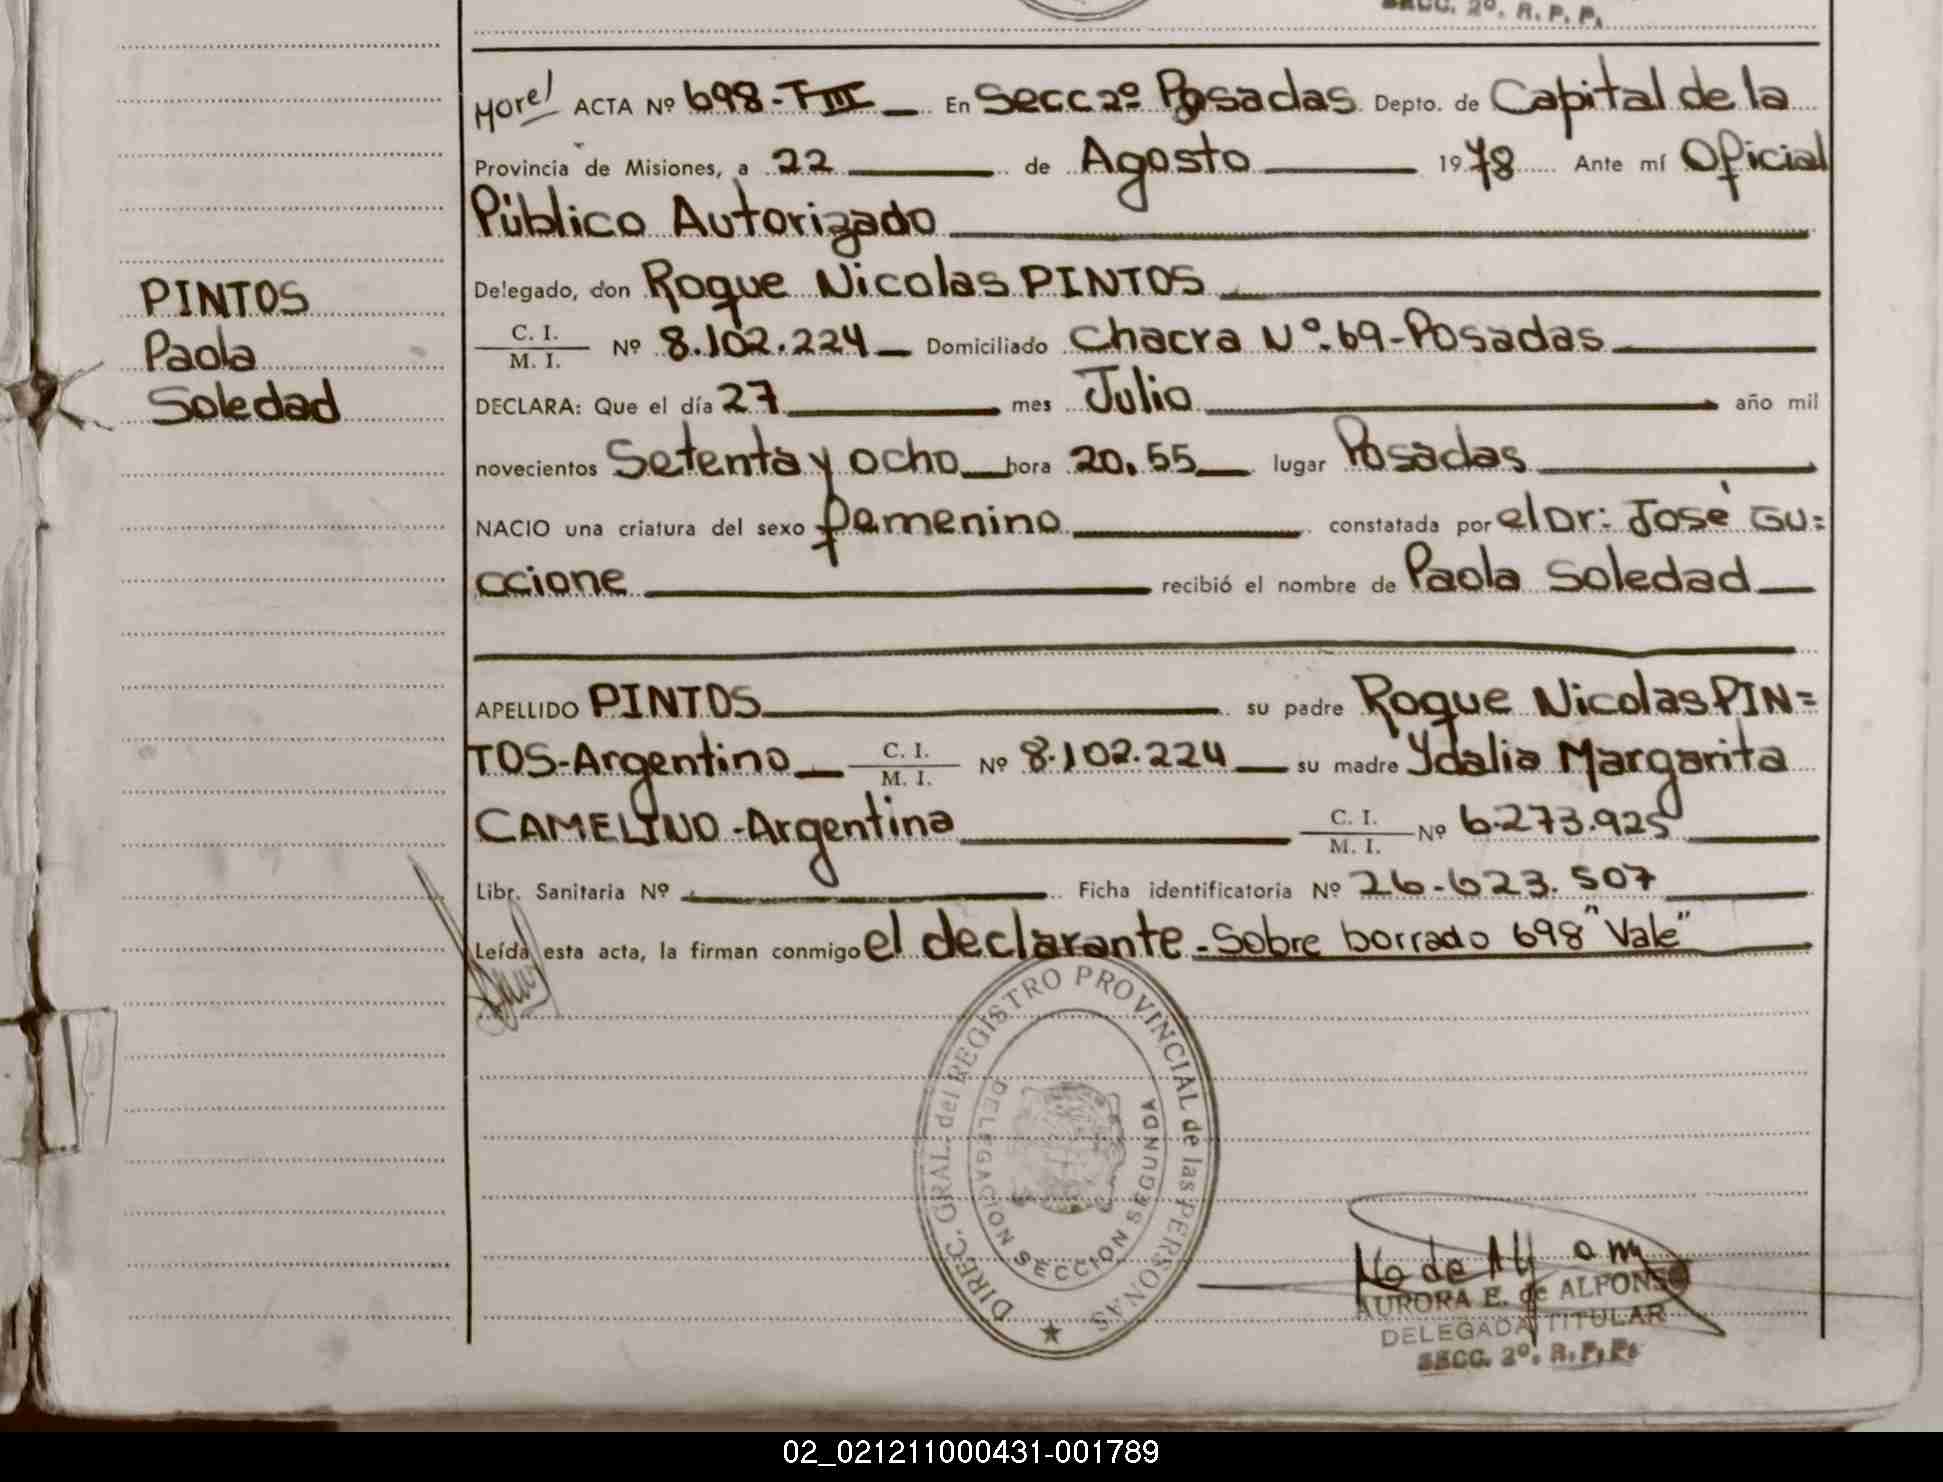 SECC. 2º. R. P. P.
Morel ACTA Nº 698-TIII En Secc 2º Posadas Depto. de Capital de la
Provincia de Misiones, a 22 de Agosto 1978 Ante mí Oficial
Público Autorizado
Delegado, don Roque Nicolas PINTOS
C. I. / M. I. Nº 8.102.224 Domiciliado Chacra Nº 69-Posadas
DECLARA: Que el día 27 mes Julio año mil
novecientos Setenta y ocho hora 20,55 lugar Posadas
NACIO una criatura del sexo femenino constatada por el Dr: José Gu=
ccione recibió el nombre de Paola Soledad
APELLIDO PINTOS su padre Roque Nicolas PIN=
TOS-Argentino C. I. / M. I. Nº 8.102.224 su madre Ydalia Margarita
CAMELINO-Argentina C. I. / M. I. Nº 6.273.925
Libr. Sanitaria Nº Ficha identificatoria Nº 26.623.507
Leída esta acta, la firman conmigo el declarante-Sobre borrado 698 "Vale"
PINTOS
Paola
Soledad
DIREC. GRAL. del REGISTRO PROVINCIAL de las PERSONAS
DELEGACION SECCION SEGUNDA
AURORA E. de ALFONSO
DELEGADA TITULAR
SECC. 2º. R. P. P.
02_021211000431-001789